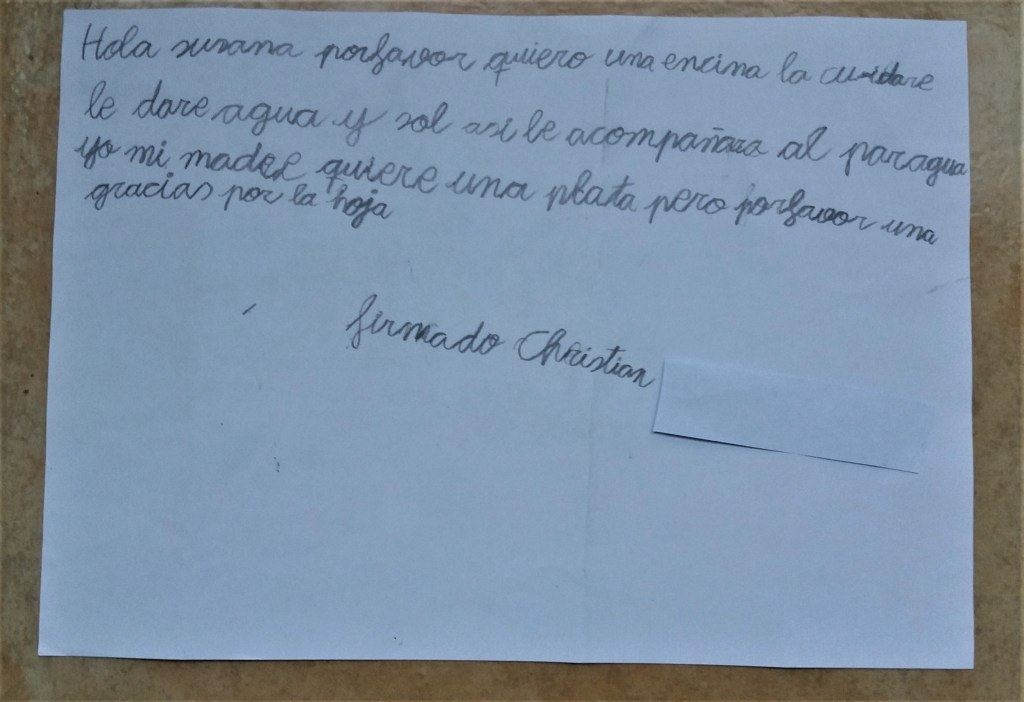 Hola susana porfavor quiero una encina la cuidare
le dare agua y sol asi le acompañara al paragua
yo mi madre quiere una plata pero porfavor una
gracias por la hoja
firmado Christian